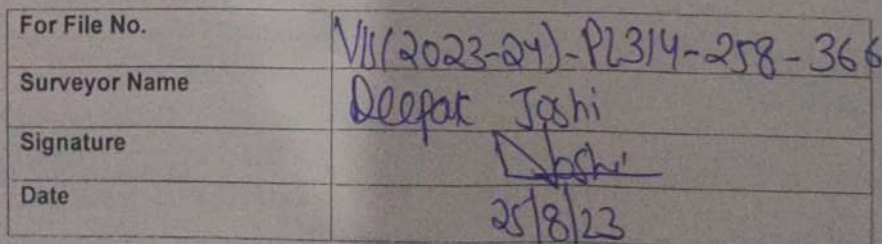 For File No. VIS(2023-24)-PL314-258-366
Surveyor Name Deepak Joshi
Signature DJoshi
Date 25/8/23